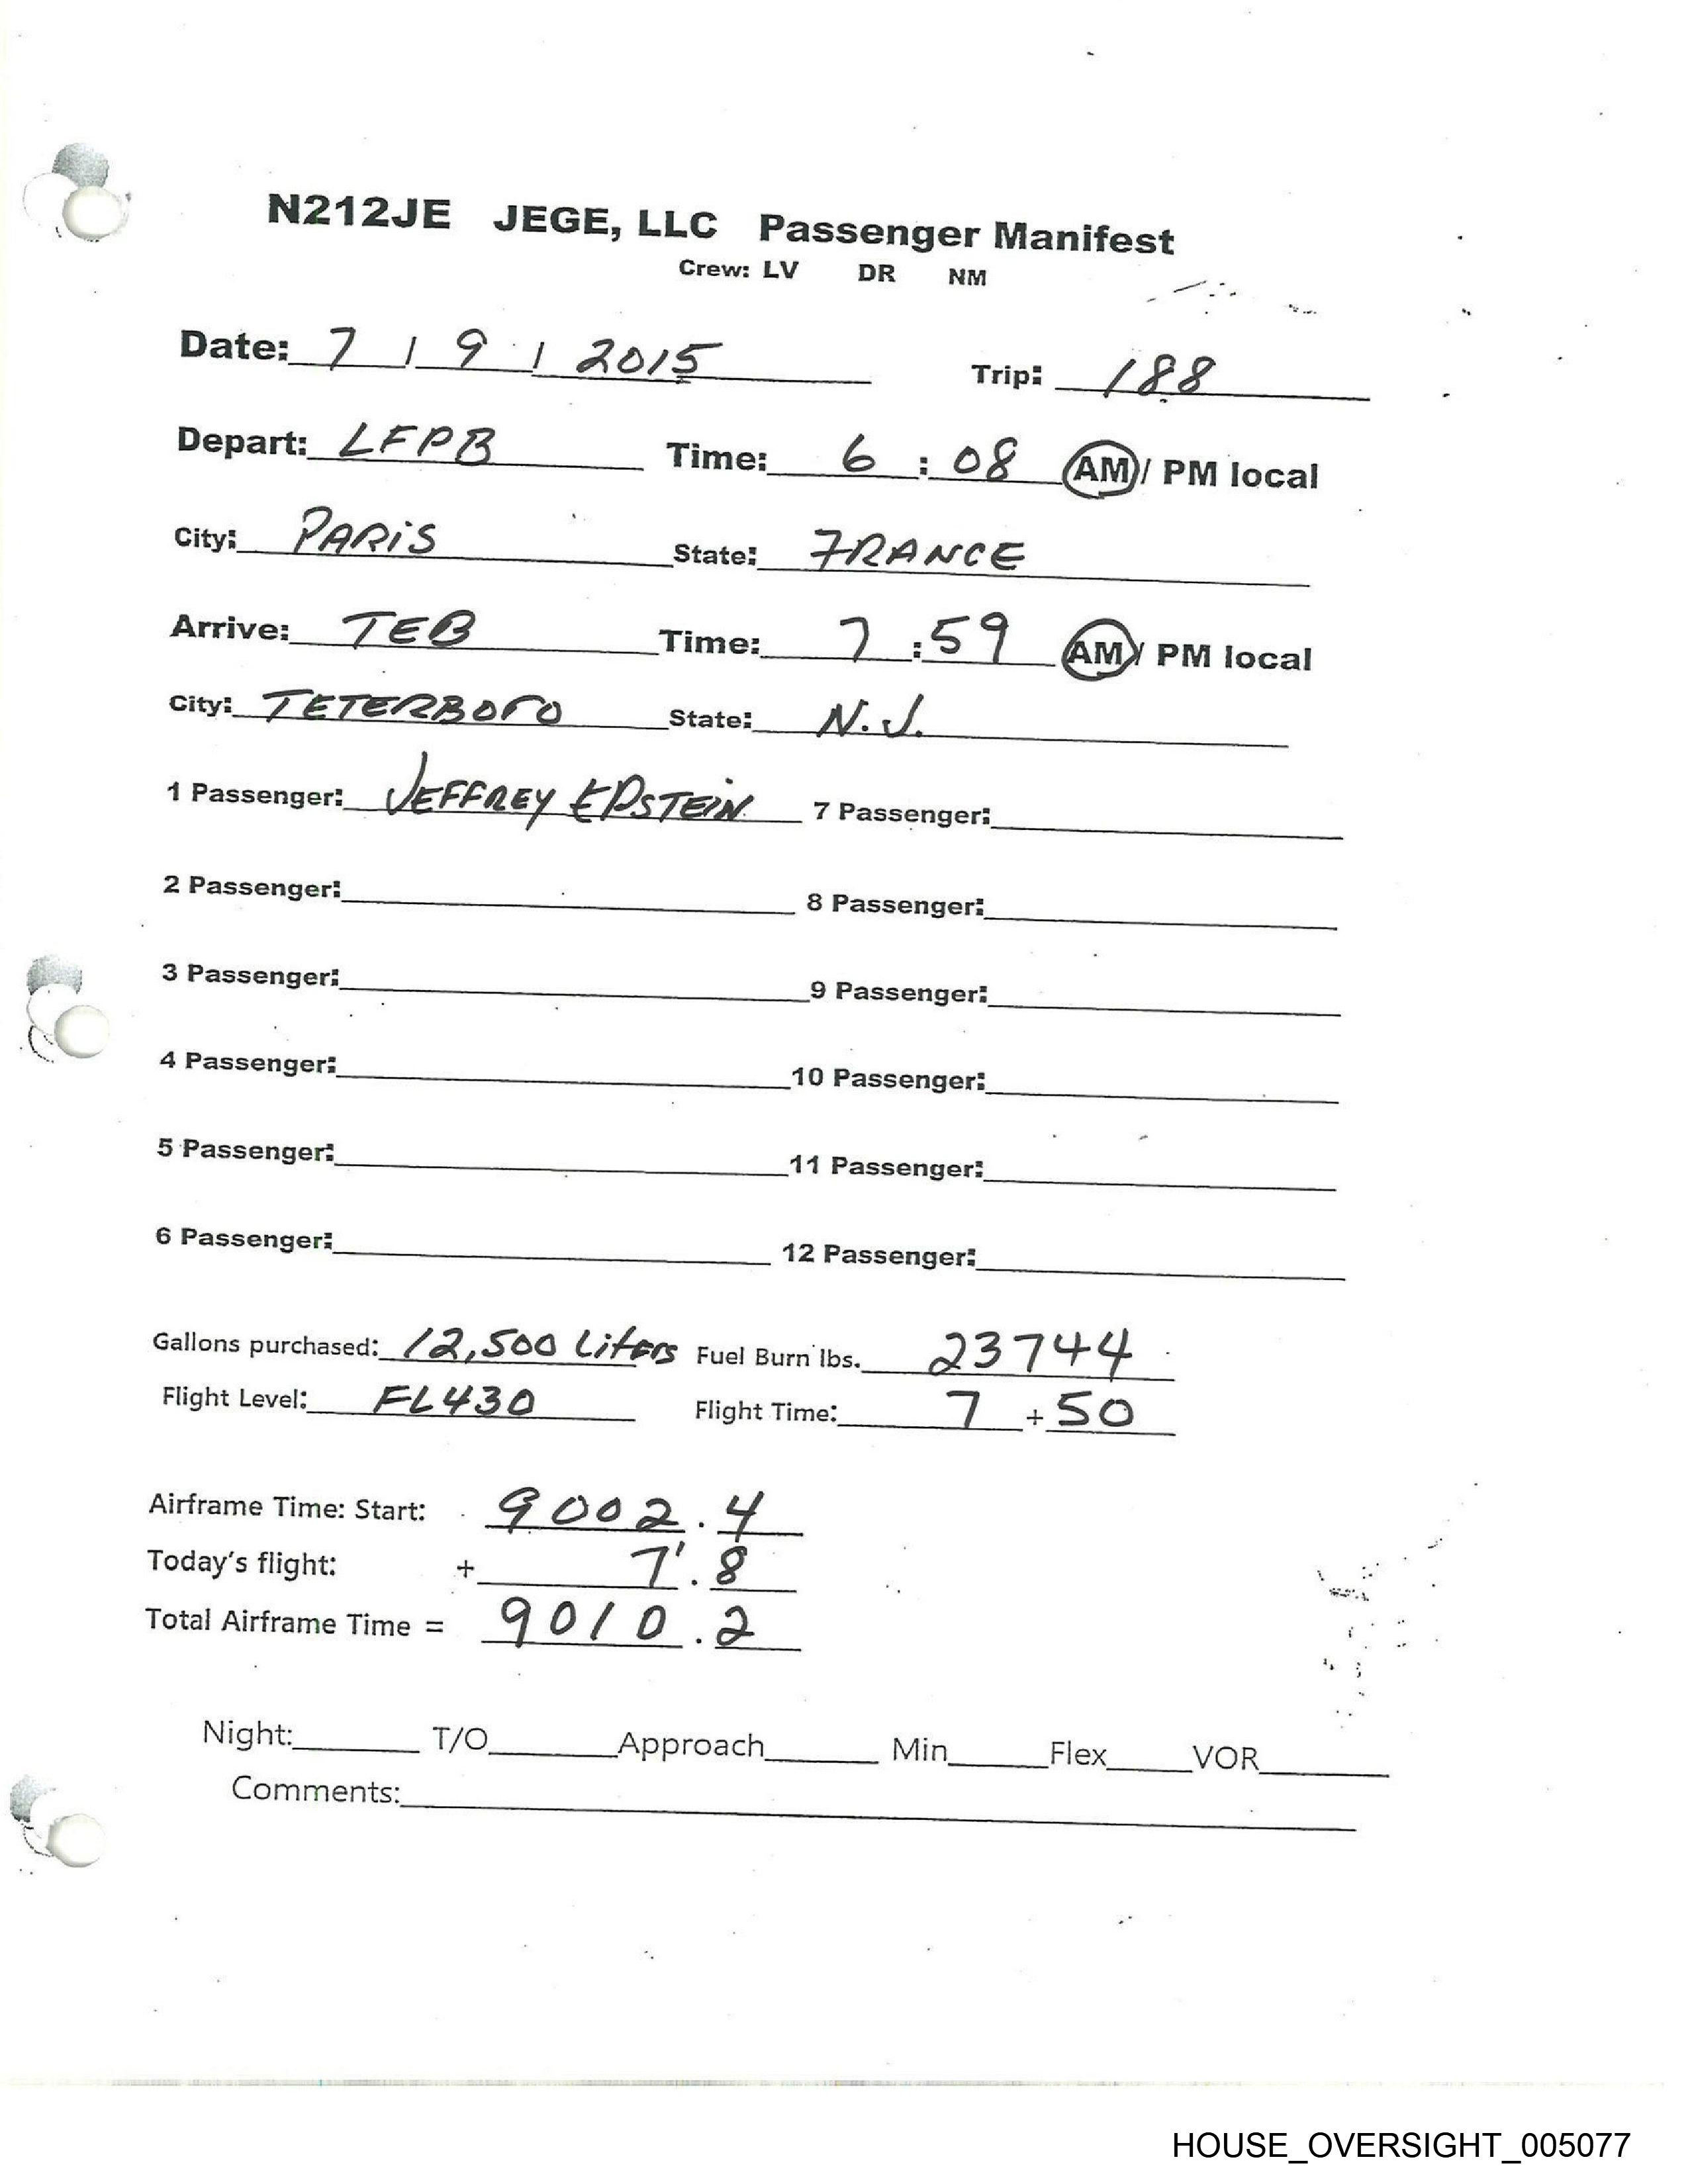 N212JE JEGE, LLC Passenger Manifest
Crew: LV DR NM
Date: 7 / 9 / 2015 Trip: 188
Depart: LFPB Time: 6 : 08 AM / PM local
City: PARIS State: FRANCE
Arrive: TEB Time: 7 : 59 AM / PM local
City: TETERBORO State: N.J.
1 Passenger: JEFFREY EPSTEIN 7 Passenger:
2 Passenger: 8 Passenger:
3 Passenger: 9 Passenger:
4 Passenger: 10 Passenger:
5 Passenger: 11 Passenger:
6 Passenger: 12 Passenger:
Gallons purchased: 12,500 Liters Fuel Burn lbs. 23744
Flight Level: FL430 Flight Time: 7 + 50
Airframe Time: Start: 9002.4
Today's flight: + 7.8
Total Airframe Time = 9010.2
Night: T/O Approach Min Flex VOR
Comments:
HOUSE_OVERSIGHT_005077